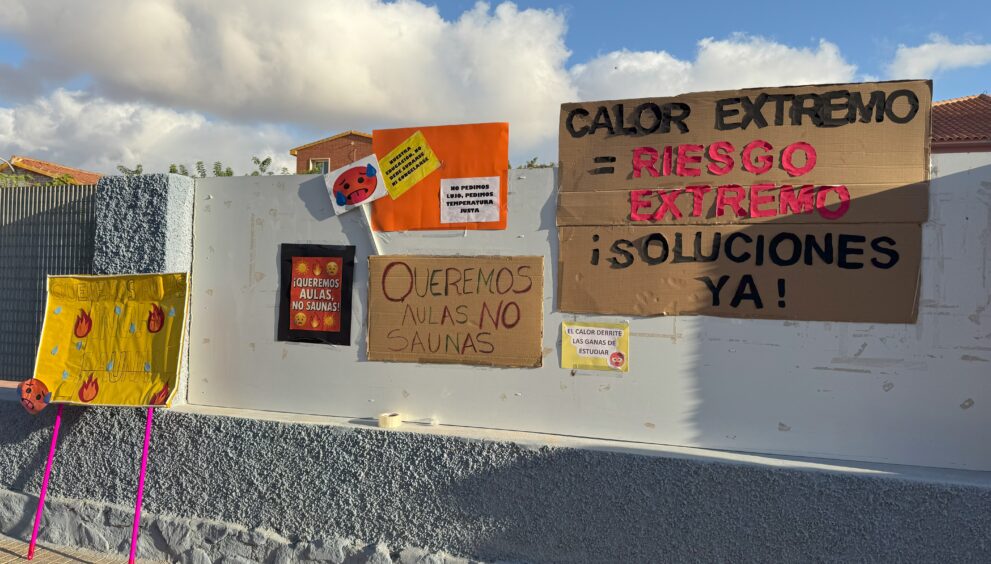 NUESTRA
EDUCACIÓN, NO
DEBE SUDARSE
NI CONGELARSE
NO PEDIMOS
LUJO, PEDIMOS
TEMPERATURA
JUSTA
CALOR EXTREMO
= RIESGO
EXTREMO
¡SOLUCIONES
YA!
¡QUEREMOS
AULAS,
NO SAUNAS!
QUEREMOS
AULAS NO
SAUNAS
EL CALOR DERRITE
LAS GANAS DE
ESTUDIAR